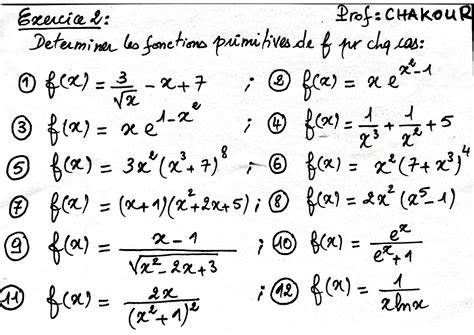 Exercice 2: Prof: CHAKOUR
Determiner les fonctions primitives de f pr chq cas:
① f(x) = 3/√x - x + 7 ; ② f(x) = x e^(x²-1)
③ f(x) = x e^(1-x²) ; ④ f(x) = 1/x³ + 1/x² + 5
⑤ f(x) = 3x²(x³+7)⁸ ; ⑥ f(x) = x²(7+x³)⁴
⑦ f(x) = (x+1)(x²+2x+5) ; ⑧ f(x) = 2x²(x⁵-1)
⑨ f(x) = (x-1)/√(x²-2x+3) ; ⑩ f(x) = e^x/(e^x+1)
⑪ f(x) = 2x/(x²+1)² ; ⑫ f(x) = 1/(x ln x)